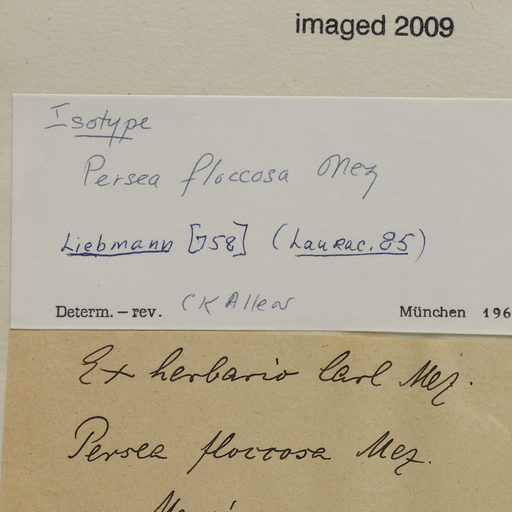 imaged 2009
Isotype
Persea floccosa Mez
Liebmann [758] (Laurac. 85)
Determ. – rev. CK Allen
München 196
Ex herbario Carl Mez.
Persea floccosa Mez.